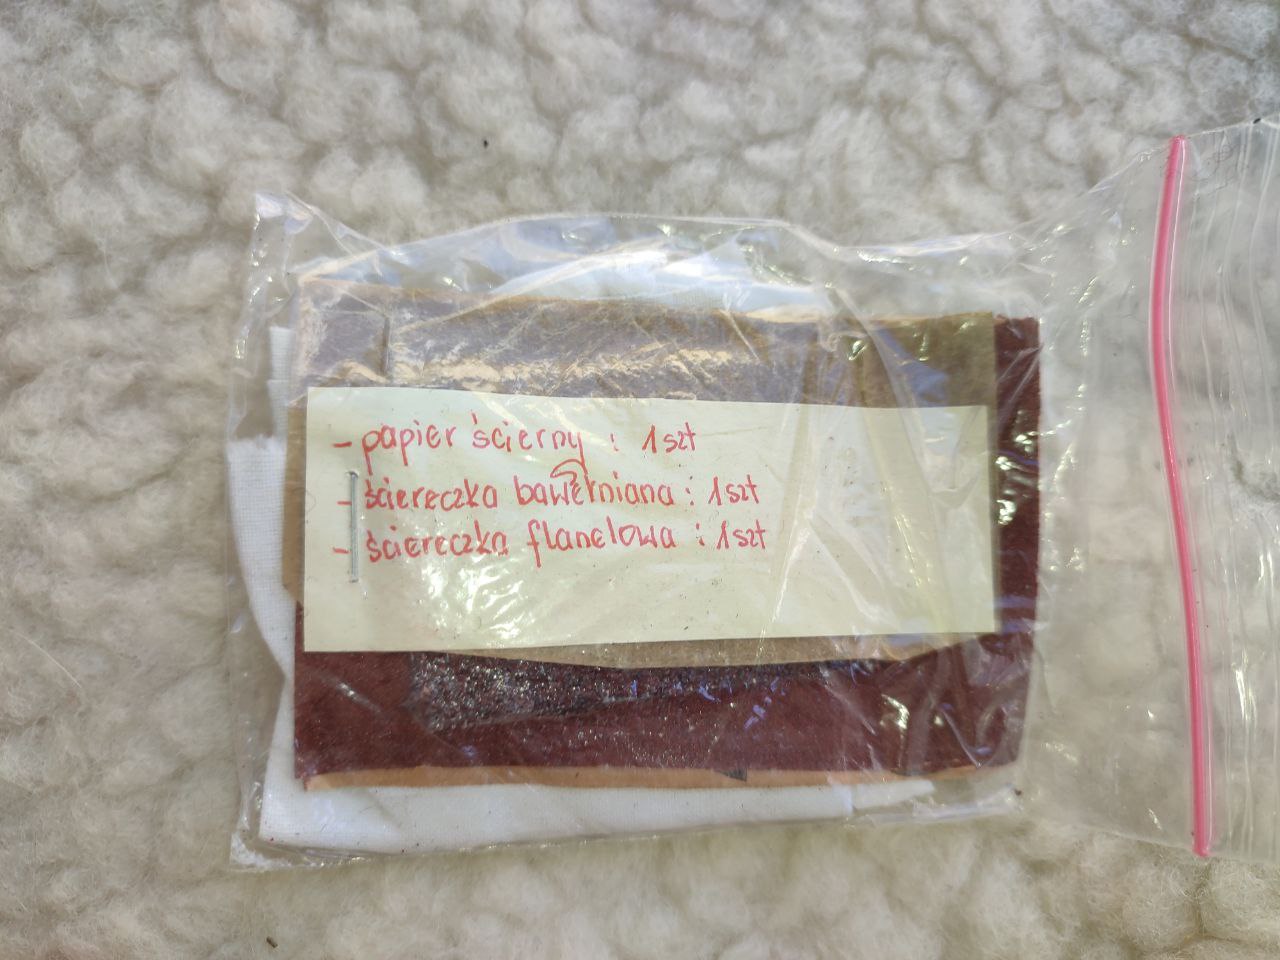 - papier ścierny : 1 szt
- ściereczka bawełniana : 1 szt
- ściereczka flanelowa : 1 szt